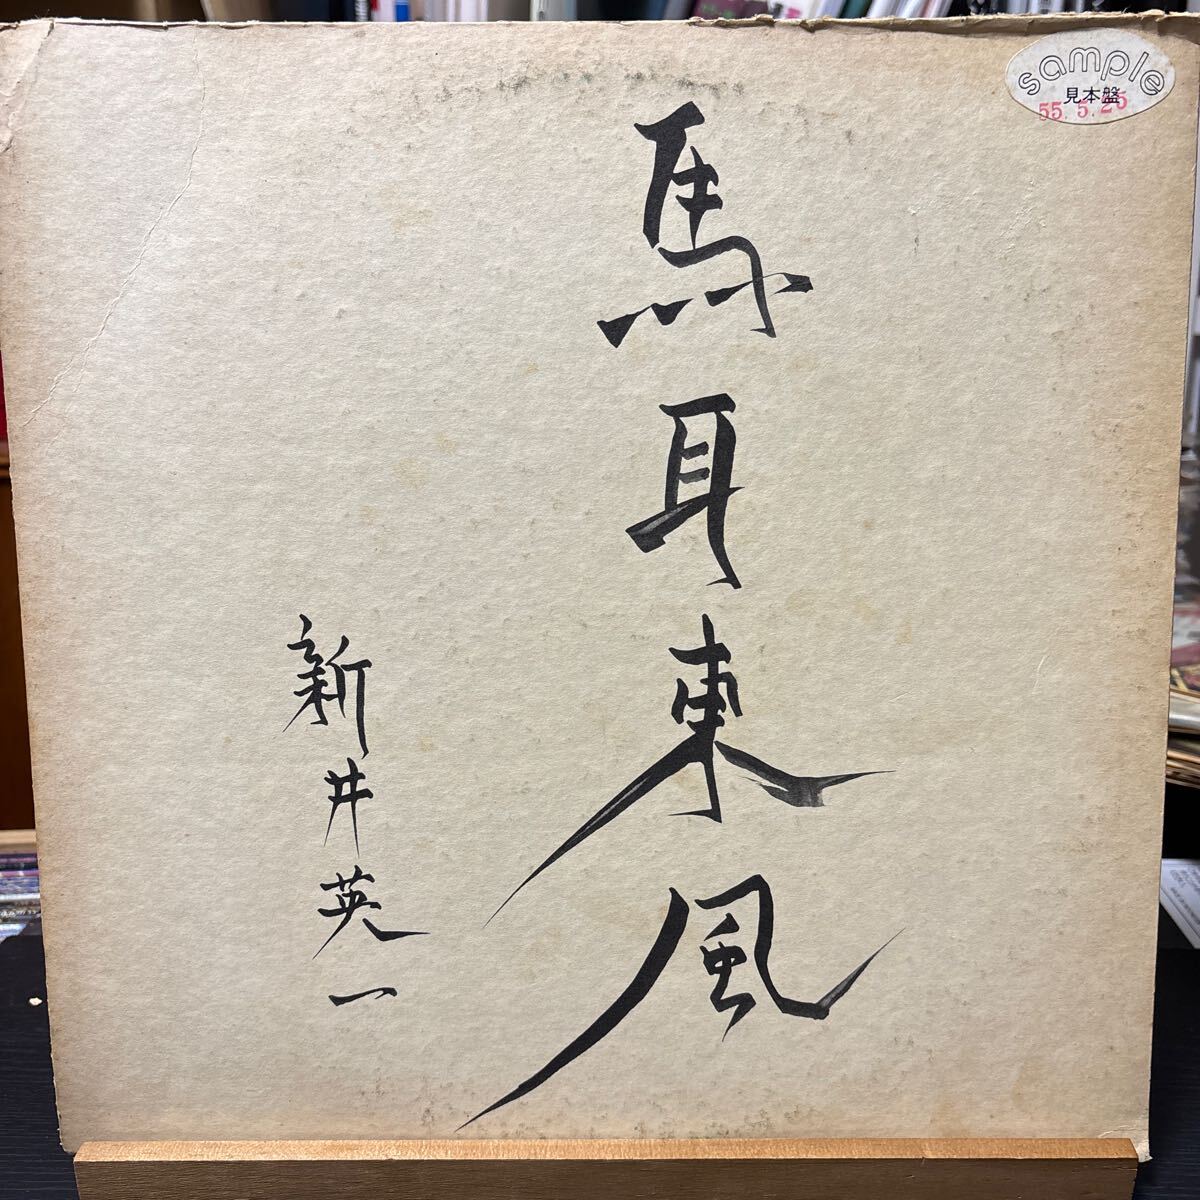 馬耳東風
新井英一
sample
見本盤
55.5.25